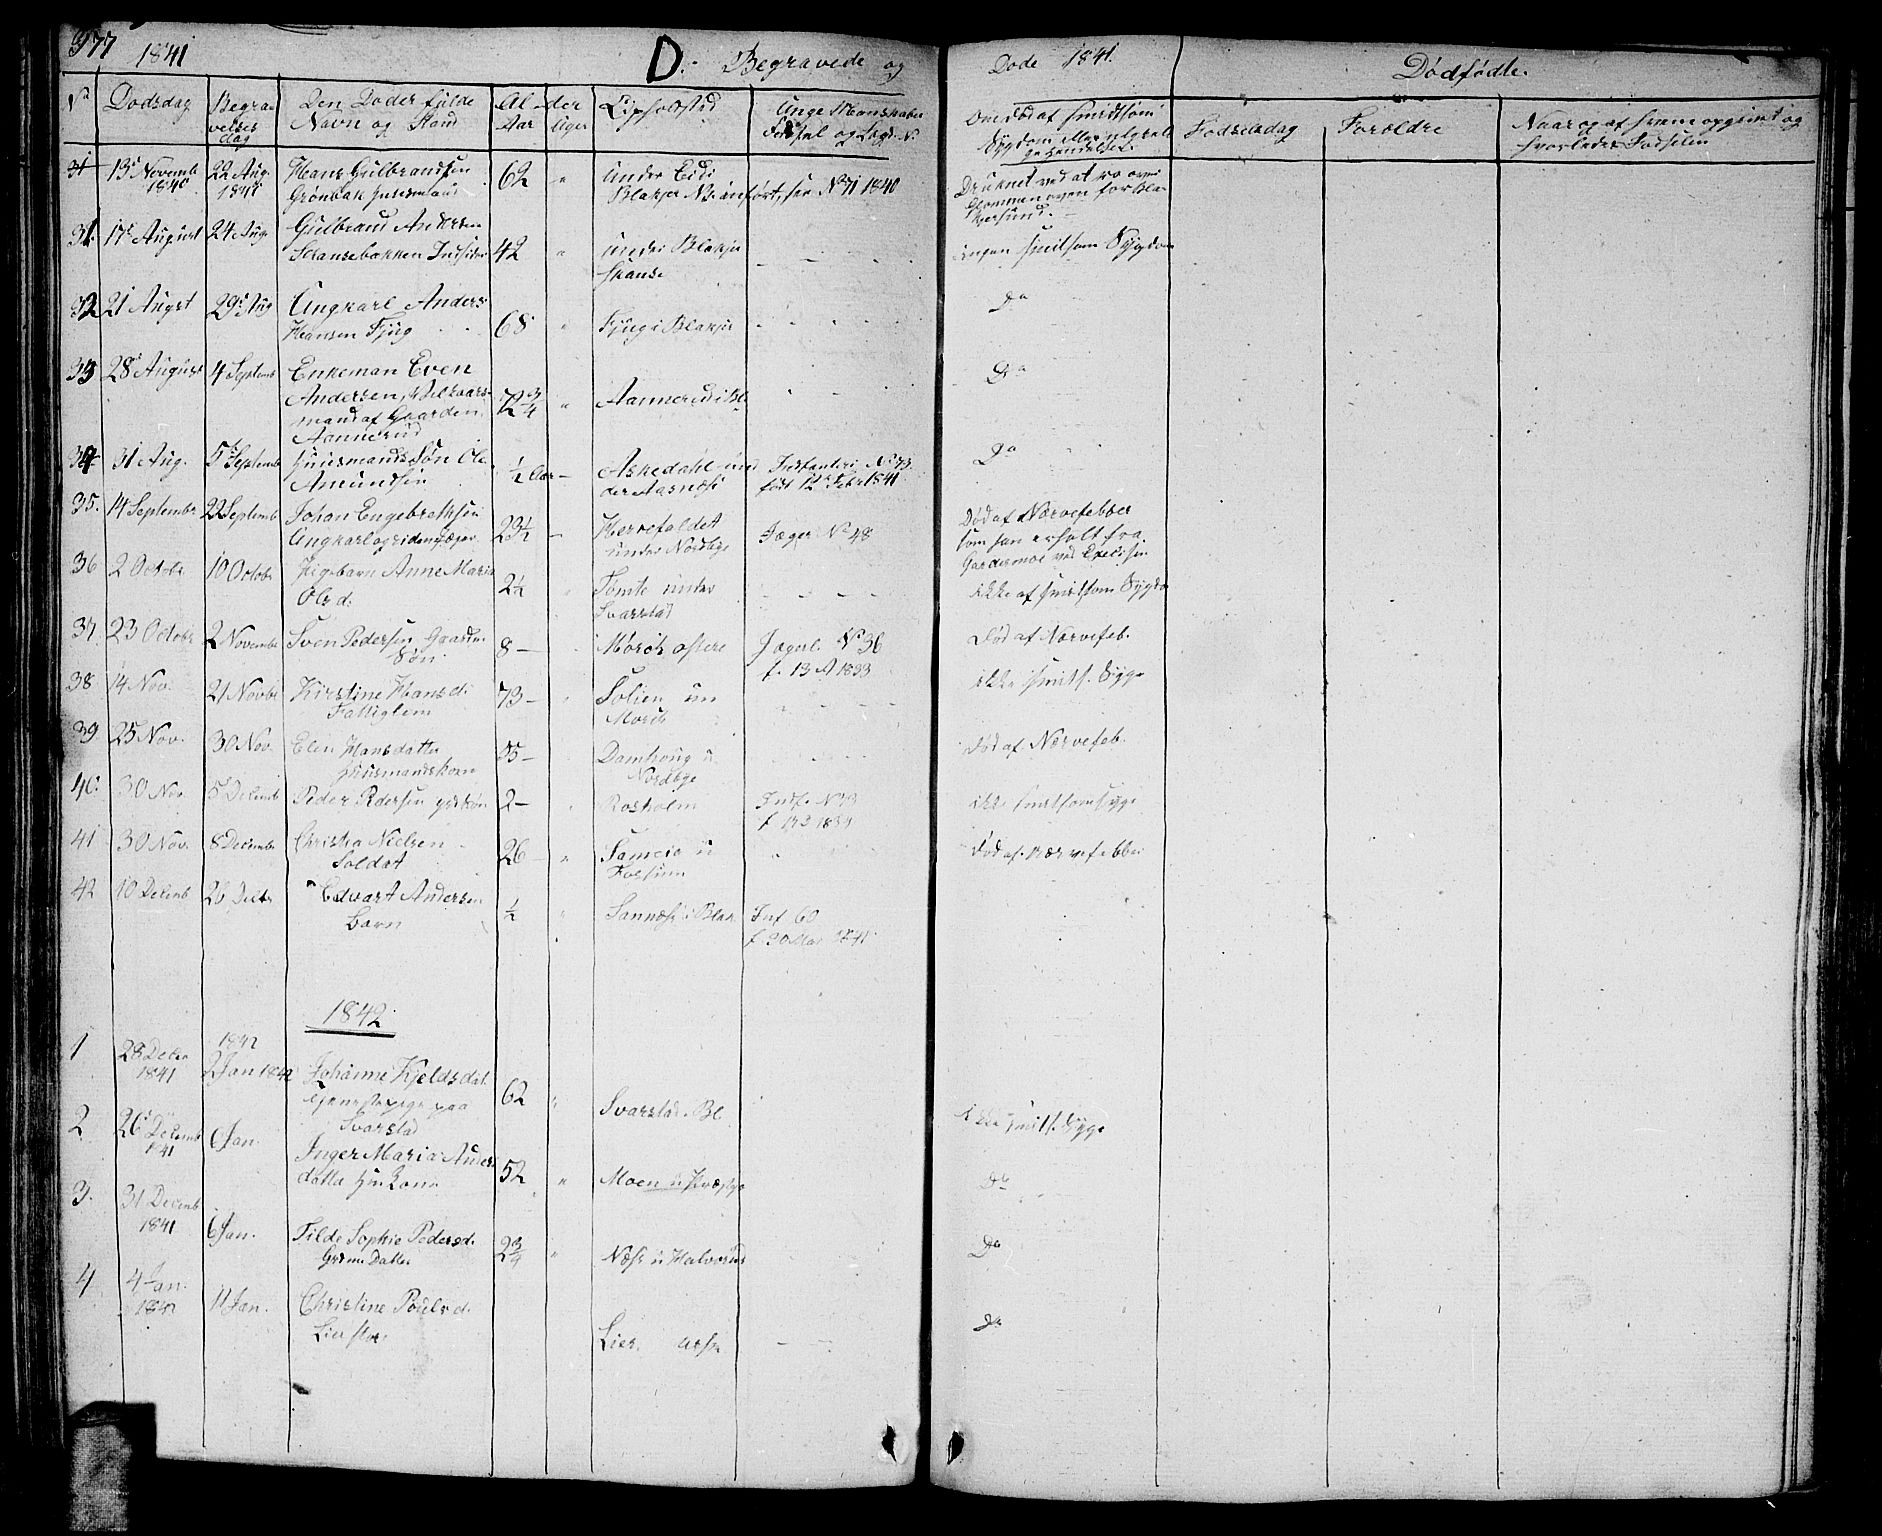 377 1841 D. Begravede og Døde 1841. Dødfødte.
No Dødsdag Begravelses dag Den Dødes fulde Navn og Stand Al Aar der Uger Opholdsted Unge Mandskabers Fødsel og Lægs No
Om død af smidsom Sygdom Fødselsdag Forældre
31 13d Novemb 1840 22 Aug. 1841 Hans Gulbrandsen 62 " under Eidi
Blakjer No anført, see No 71 1840
Druknet ved at ro over
Glommen oven for Bla
kersund.
31. 17d August 24 Aug Gulbrand Andersen
Scansebakken Indsider 42 " under Blakjer
Skanse
ingen smitsom Sygdom
32 21 Augst 29d Aug Ungkarl Anders
Hansen Fjug 68 " Fjug i Blakjer
Do
33 28d August 4 Septemb Enkeman Even
Andersen,
mand af Gaarden
Aannerud 72 3/4 " Aannerud i Bl
Do
34 31 Aug. 5t Septemb Huusmands Søn Ole
Amundsen 1/2 Aar — Askedahl un
der Aasnæs Infanteri No 73
født 12 Febr 1841
Do
35. 14 Septembr 22 Septemb Johan Engebrethsen
Ungkarl og ridenjæger 23 1/2 — Hervefaldet
under Nordbye Jæger No 48
Død af Nervefebber
som han erholt fra
Gardermoe ved Exelisen
36 2 Octobr 10 Octobr Pigebarn Anne Maria
Olsd. 2 1/2 " Tomte under
Svarstad
ikke af smitsom Sygdo
37. 23 Octobr 2 Novembr Sven Pedersen Gaardm.
Søn 8 — Mørch østere Jægerl. No 36
f. 13 A 1833
Død af Nervefeb.
38 14 Nov. 21 Novbr Kirstine Hansd.
Fattiglem 73 — " Solien un
Morch
ikke smits. Syge
39 25 Nov. 30 Nov. Elen Hansdatter
Huusmandskone 35 — Damhoug u
Nordbye
Død af Nervefeb.
40. 30 Nov. 8 Decemb Peder Pedersen 2 — " Rosholm Inf. No 73
ikke smitsom syge
41 30 Nov. 8 Decembr Christia Nielsen
Soldat 26 — " u
Fossum
død af. nærvefebbe
42 10 Decemb 26 Decbr Edvart Andersen
Barn 1/2 " Sannæs i Blak. Inf 60
f 30 Mar 1841
1842
1 28 Decbr 1841 1842 2 Jan 1842 Johanne Kjeldsdat.
paa
Svarstad 62 " Svarstad. Bl.
ikke smits. Syge
2 26d Decemb 1841 6 Jan. Inger Maria Anders
datter Huskone 52 " Moen u
Do
3. 31 Decemb 1841 6 Jan. Tilde Sophie Pedersd.
Grdm. Datter 2 3/4 " Næss u Halvorsrud
Do
4 4 Jan. 1842 11 Jan. Christine Poulsd.
Lier
Do